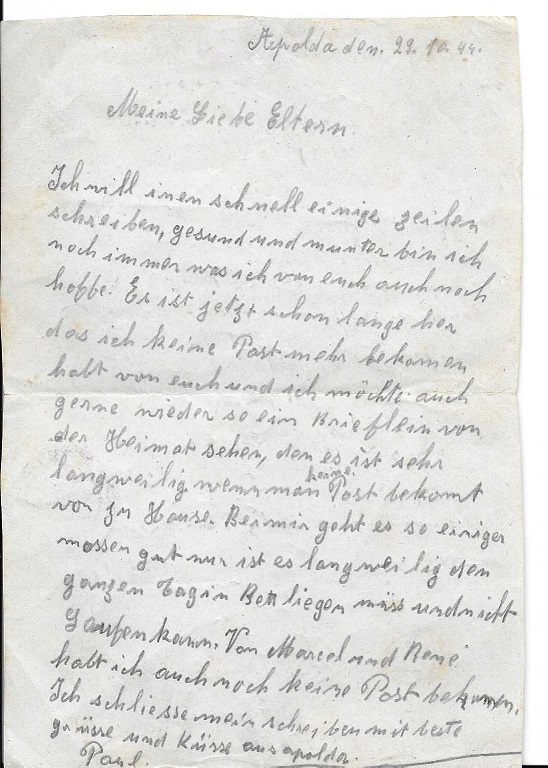 Apolda den. 29. 10. 44.
Meine Liebe Eltern
Ich will inen schnell einige zeilen
schreiben, gesund und munter bin ich
noch immer was ich von euch auch noch
hoffe. Es ist jetzt schon lange her
das ich keine Post mehr bekomen
habt von euch und ich möchte auch
gerne wieder so ein Brieflein von
der Heimat sehen, den es ist sehr
langweilig wenn man keine Post bekomt
von zu Hause. Bei mir geht es so einiger
massen gut nur ist es langweilig den
ganzen tag in Bett liegen müss und nicht
Laufen kann. Von Marcel und René
habt ich auch noch keine Post bekomen.
Ich schliesse mein schreiben mit beste
grüsse und Küsse aus apolda.
Paul.